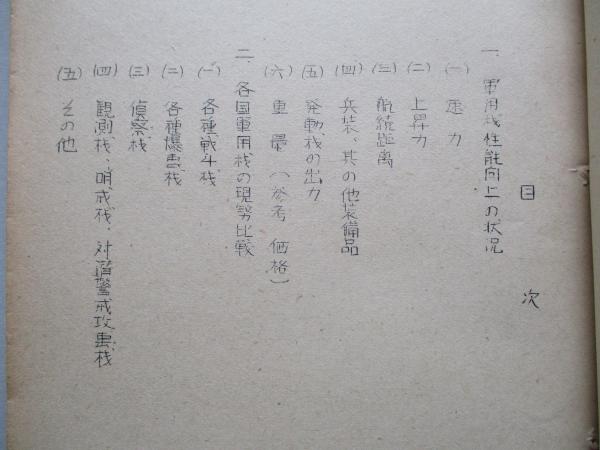 目次
一、軍用機性能向上の状况
(一) 速力
(二) 上昇力
(三) 航続距离
(四) 兵装、其の他装備品
(五) 発動機の出力
(六) 重量(参考 価格)
二、各国軍用機の現勢比較
(一) 各種戦斗機
(二) 各種爆撃機
(三) 偵察機
(四) 観測機、哨戒機、対潜警戒攻撃機
(五) その他